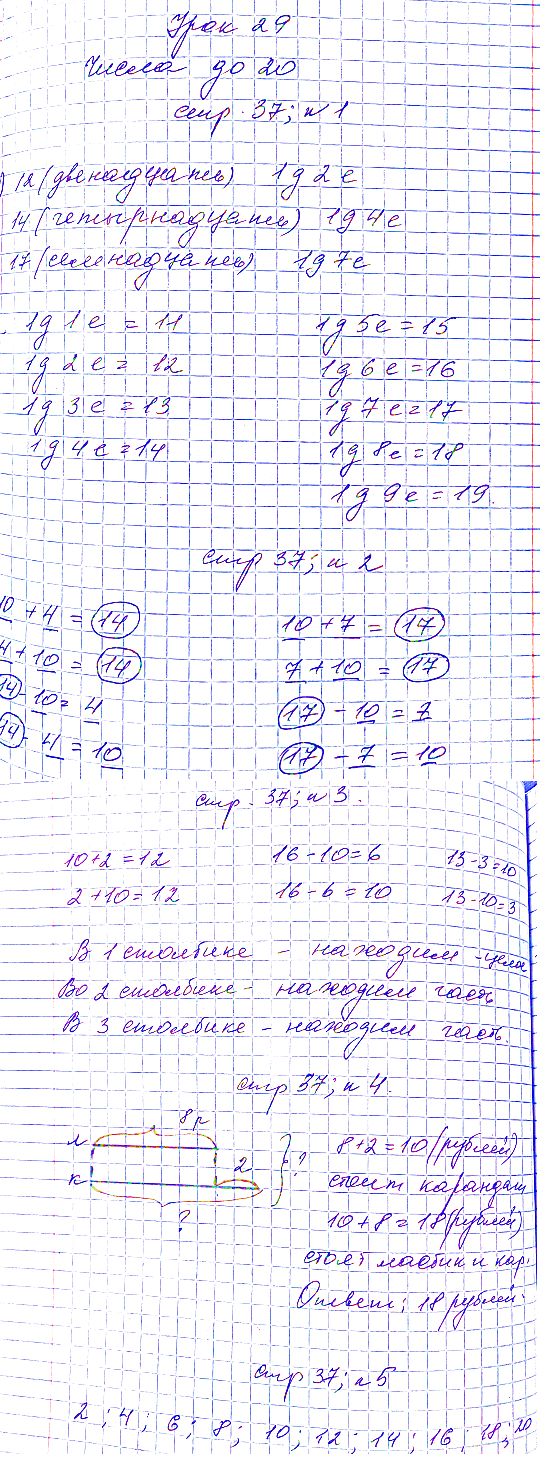 Урок 29
Числа до 20
стр. 37; н 1
) 12 (двенадцать) 1д 2е
14 (четырнадцать) 1д 4е
17 (семнадцать) 1д 7е
1д 1е = 11 1д 5е = 15
1д 2е = 12 1д 6е = 16
1д 3е = 13 1д 7е = 17
1д 4е = 14 1д 8е = 18
1д 9е = 19.
стр 37; н 2
10 + 4 = 14 10 + 7 = 17
4 + 10 = 14 7 + 10 = 17
14 - 10 = 4 17 - 10 = 7
14 - 4 = 10 17 - 7 = 10
стр. 37; н 3.
10 + 2 = 12 16 - 10 = 6 13 - 3 = 10
2 + 10 = 12 16 - 6 = 10 13 - 10 = 3
В 1 столбике - находим - целое
Во 2 столбике - находим часть
В 3 столбике - находим часть.
стр 37; н 4.
8р
л
2
к
?
?
8 + 2 = 10 (рублей)
стоит карандаш
10 + 8 = 18 (рублей)
стоят ластик и кар.
Ответ: 18 рублей.
стр 37; н 5
2 ; 4 ; 6 ; 8 ; 10 ; 12 ; 14 ; 16 ; 18 ; 20